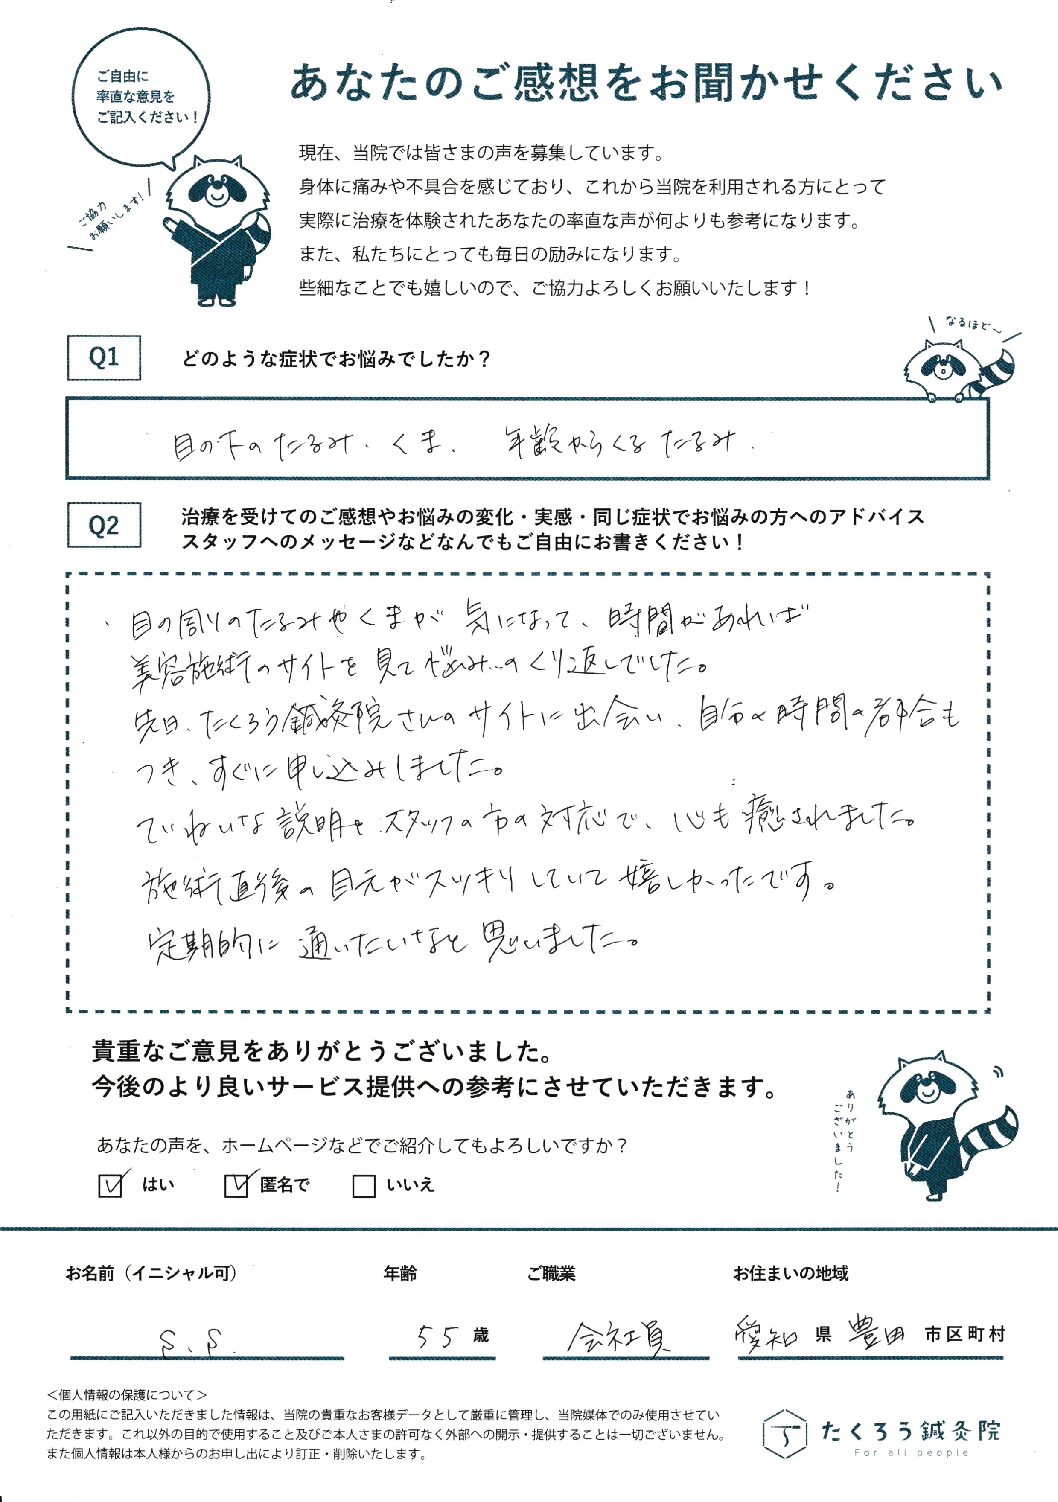 ご自由に
率直な意見を
ご記入ください！
ご協力
お願いします！
あなたのご感想をお聞かせください
現在、当院では皆さまの声を募集しています。
身体に痛みや不具合を感じており、これから当院を利用される方にとって
実際に治療を体験されたあなたの率直な声が何よりも参考になります。
また、私たちにとっても毎日の励みになります。
些細なことでも嬉しいので、ご協力よろしくお願いいたします！
なるほど〜
Q1 どのような症状でお悩みでしたか？
目の下のたるみ. くま. 年齢からくるたるみ.
Q2 治療を受けてのご感想やお悩みの変化・実感・同じ症状でお悩みの方へのアドバイス
スタッフへのメッセージなどなんでもご自由にお書きください！
目の周りのたるみやくまが気になって、時間があれば
美容施術のサイトを見て悩み…のくり返しでした。
先日、たくろう鍼灸院さんのサイトに出会い、自分の時間の都合も
つき、すぐに申し込みしました。
ていねいな説明やスタッフの方の対応で、心も癒されました。
施術直後の目元がスッキリしていて嬉しかったです。
定期的に通いたいなと思いました。
貴重なご意見をありがとうございました。
今後のより良いサービス提供への参考にさせていただきます。
ありがとう
ございました！
あなたの声を、ホームページなどでご紹介してもよろしいですか？
はい 匿名で いいえ
お名前（イニシャル可） 年齢 ご職業 お住まいの地域
S.S. 55 歳 会社員 愛知 県 豊田 市区町村
＜個人情報の保護について＞
この用紙にご記入いただきました情報は、当院の貴重なお客様データとして厳重に管理し、当院媒体でのみ使用させてい
ただきます。これ以外の目的で使用すること及びご本人さまの許可なく外部への開示・提供することは一切ございません。
また個人情報は本人様からのお申し出により訂正・削除いたします。
たくろう鍼灸院
For all people